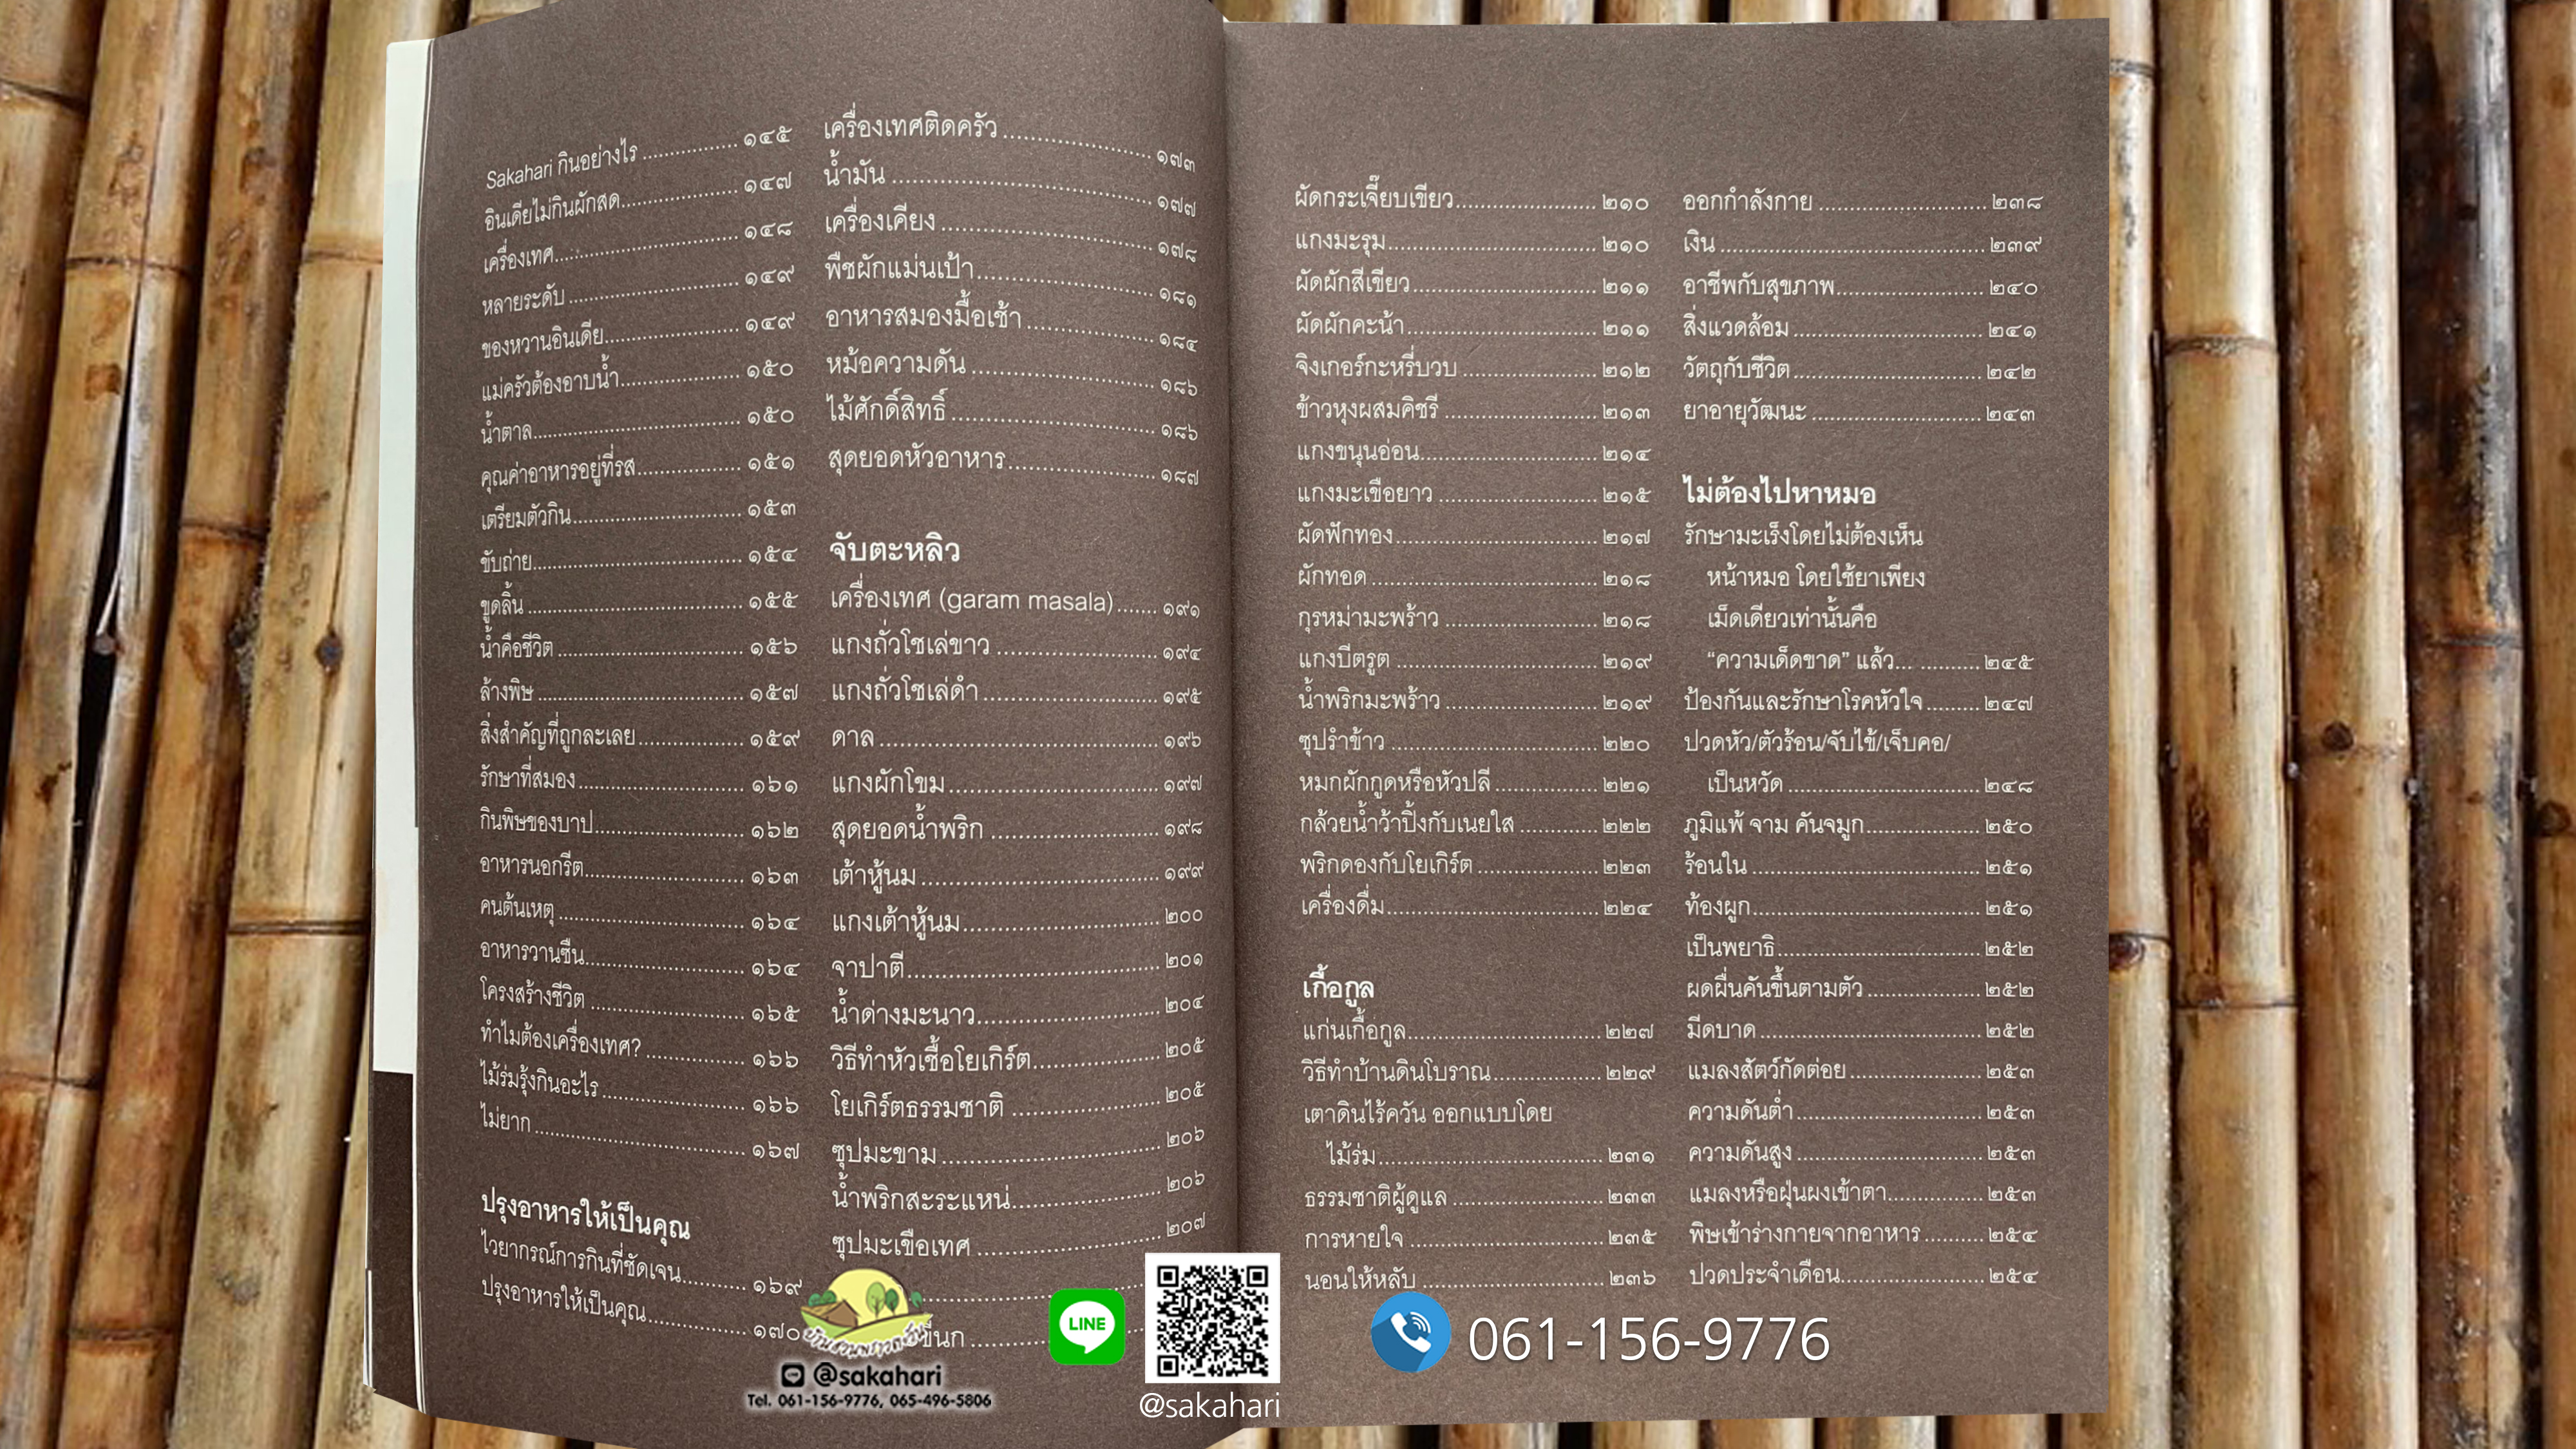 Sakahari กินอย่างไร ๑๔๕
อินเดียไม่กินผักสด ๑๔๗
เครื่องเทศ ๑๔๘
หลายระดับ ๑๔๙
ของหวานอินเดีย ๑๔๙
แม่ครัวต้องอาบน้ำ ๑๕๐
น้ำตาล ๑๕๐
คุณค่าอาหารอยู่ที่รส ๑๕๑
เตรียมตัวกิน ๑๕๓
ขับถ่าย ๑๕๔
ขูดลิ้น ๑๕๕
น้ำคือชีวิต ๑๕๖
ล้างพิษ ๑๕๗
สิ่งสำคัญที่ถูกละเลย ๑๕๙
รักษาที่สมอง ๑๖๑
กินพิษของบาป ๑๖๒
อาหารนอกรีต ๑๖๓
คนต้นเหตุ ๑๖๔
อาหารวานซืน ๑๖๔
โครงสร้างชีวิต ๑๖๕
ทำไมต้องเครื่องเทศ? ๑๖๖
ไม้ร่มรุ้งกินอะไร ๑๖๖
ไม่ยาก ๑๖๗
ปรุงอาหารให้เป็นคุณ
ไวยากรณ์การกินที่ชัดเจน ๑๖๙
ปรุงอาหารให้เป็นคุณ ๑๗๐
เครื่องเทศติดครัว ๑๗๓
น้ำมัน ๑๗๗
เครื่องเคียง ๑๗๘
พืชผักแม่นเป้า ๑๘๑
อาหารสมองมื้อเช้า ๑๘๔
หม้อความดัน ๑๘๖
ไม้ศักดิ์สิทธิ์ ๑๘๖
สุดยอดหัวอาหาร ๑๘๗
จับตะหลิว
เครื่องเทศ (garam masala) ๑๙๑
แกงถั่วโชเล่ขาว ๑๙๔
แกงถั่วโชเล่ดำ ๑๙๕
ดาล ๑๙๖
แกงผักโขม ๑๙๗
สุดยอดน้ำพริก ๑๙๘
เต้าหู้นม ๑๙๙
แกงเต้าหู้นม ๒๐๐
จาปาตี ๒๐๑
น้ำด่างมะนาว ๒๐๔
วิธีทำหัวเชื้อโยเกิร์ต ๒๐๕
โยเกิร์ตธรรมชาติ ๒๐๕
ซุปมะขาม ๒๐๖
น้ำพริกสะระแหน่ ๒๐๖
ซุปมะเขือเทศ ๒๐๗
ขี้นก
ผัดกระเจี๊ยบเขียว ๒๑๐
แกงมะรุม ๒๑๐
ผัดผักสีเขียว ๒๑๑
ผัดผักคะน้า ๒๑๑
จิงเกอร์กะหรี่บวบ ๒๑๒
ข้าวหุงผสมคิชรี ๒๑๓
แกงขนุนอ่อน ๒๑๔
แกงมะเขือยาว ๒๑๕
ผัดฟักทอง ๒๑๗
ผักทอด ๒๑๘
กุรหม่ามะพร้าว ๒๑๘
แกงบีตรูต ๒๑๙
น้ำพริกมะพร้าว ๒๑๙
ซุปรำข้าว ๒๒๐
หมกผักกูดหรือหัวปลี ๒๒๑
กล้วยน้ำว้าปิ้งกับเนยใส ๒๒๒
พริกดองกับโยเกิร์ต ๒๒๓
เครื่องดื่ม ๒๒๔
เกื้อกูล
แก่นเกื้อกูล ๒๒๗
วิธีทำบ้านดินโบราณ ๒๒๙
เตาดินไร้ควัน ออกแบบโดย
ไม้ร่ม ๒๓๑
ธรรมชาติผู้ดูแล ๒๓๓
การหายใจ ๒๓๕
นอนให้หลับ ๒๓๖
ออกกำลังกาย ๒๓๘
เงิน ๒๓๙
อาชีพกับสุขภาพ ๒๔๐
สิ่งแวดล้อม ๒๔๑
วัตถุกับชีวิต ๒๔๒
ยาอายุวัฒนะ ๒๔๓
ไม่ต้องไปหาหมอ
รักษามะเร็งโดยไม่ต้องเห็น
หน้าหมอ โดยใช้ยาเพียง
เม็ดเดียวเท่านั้นคือ
“ความเด็ดขาด” แล้ว... ๒๔๕
ป้องกันและรักษาโรคหัวใจ ๒๔๗
ปวดหัว/ตัวร้อน/จับไข้/เจ็บคอ/
เป็นหวัด ๒๔๘
ภูมิแพ้ จาม คันจมูก ๒๕๐
ร้อนใน ๒๕๑
ท้องผูก ๒๕๑
เป็นพยาธิ ๒๕๒
ผดผื่นคันขึ้นตามตัว ๒๕๒
มีดบาด ๒๕๒
แมลงสัตว์กัดต่อย ๒๕๓
ความดันต่ำ ๒๕๓
ความดันสูง ๒๕๓
แมลงหรือฝุ่นผงเข้าตา ๒๕๓
พิษเข้าร่างกายจากอาหาร ๒๕๔
ปวดประจำเดือน ๒๕๔
@sakahari
Tel. 061-156-9776, 065-496-5806
LINE
@sakahari
061-156-9776